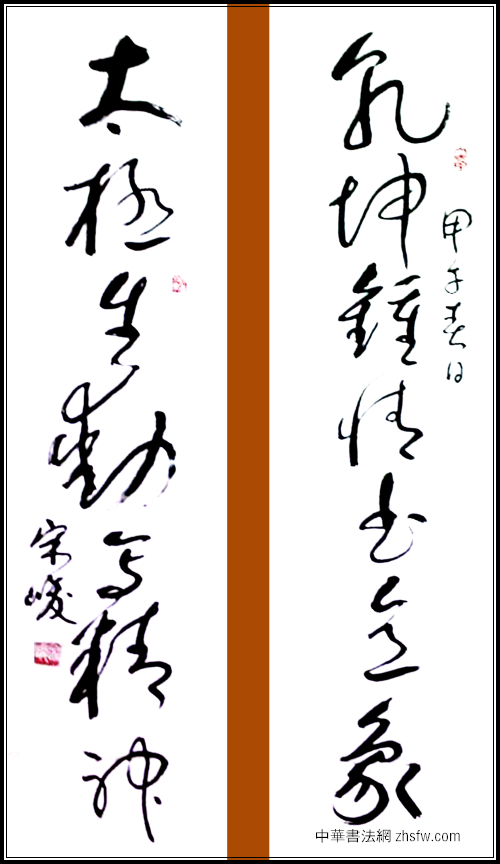 甲午春日
乾坤鍾情书意象
太極生動写精神
宋峻
中華書法網 zhsfw.com